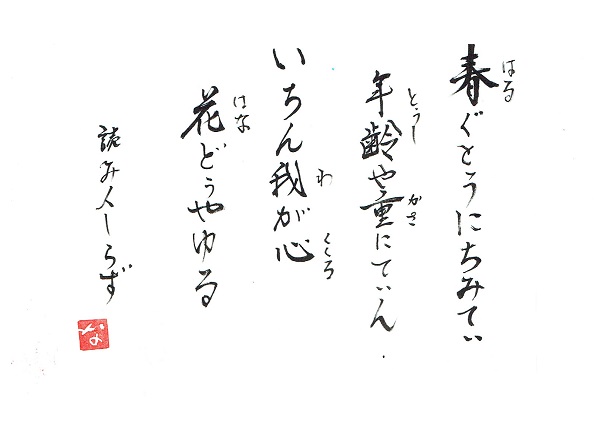 はる
春ぐとぅにちみてぃ
とぅし かさ
年齢や重にてぃん
わ くくる
いちん我が心
はな
花どぅやゆる
読み人しらず